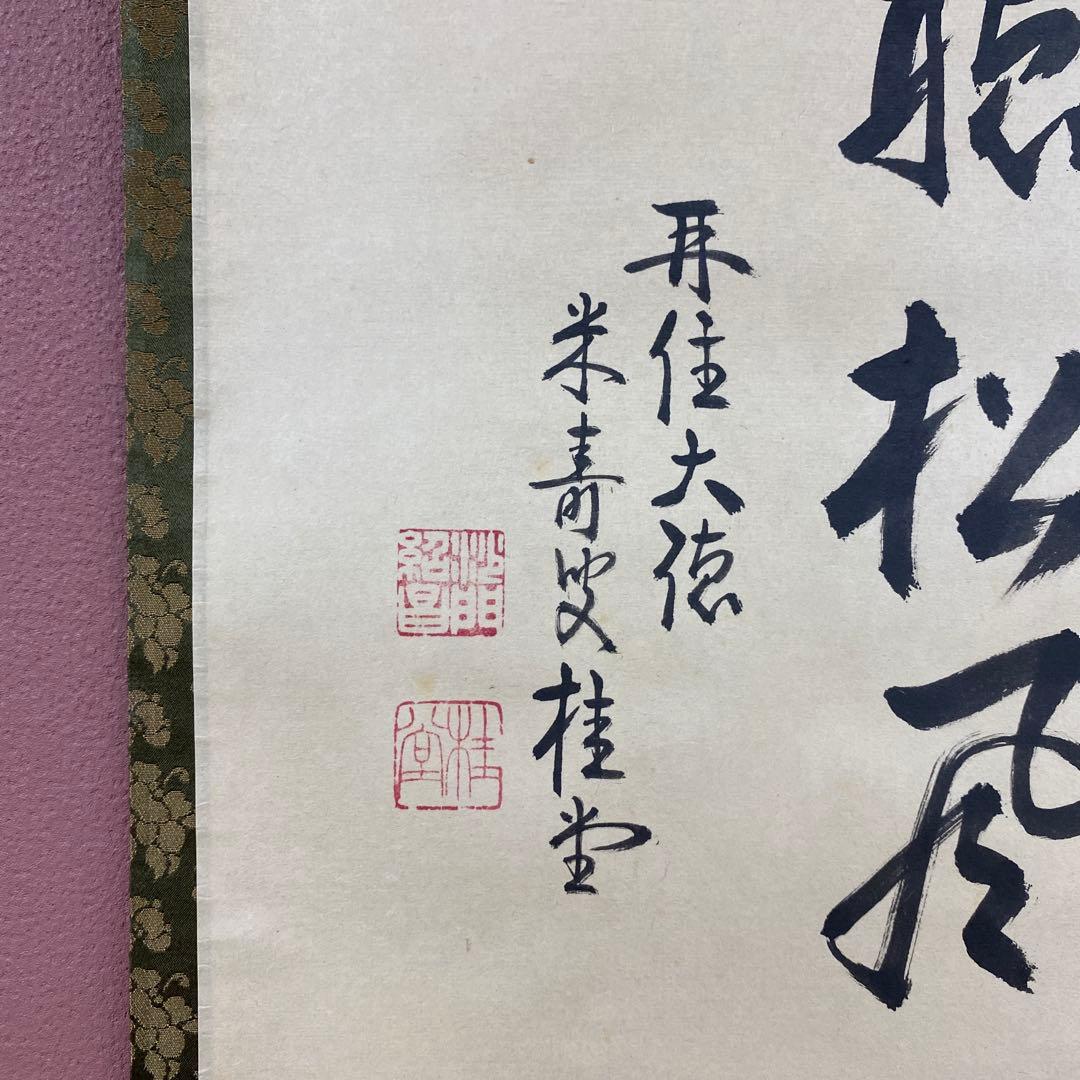 聴松風
再住大徳
米寿叟桂堂
沙門紹昌
桂堂